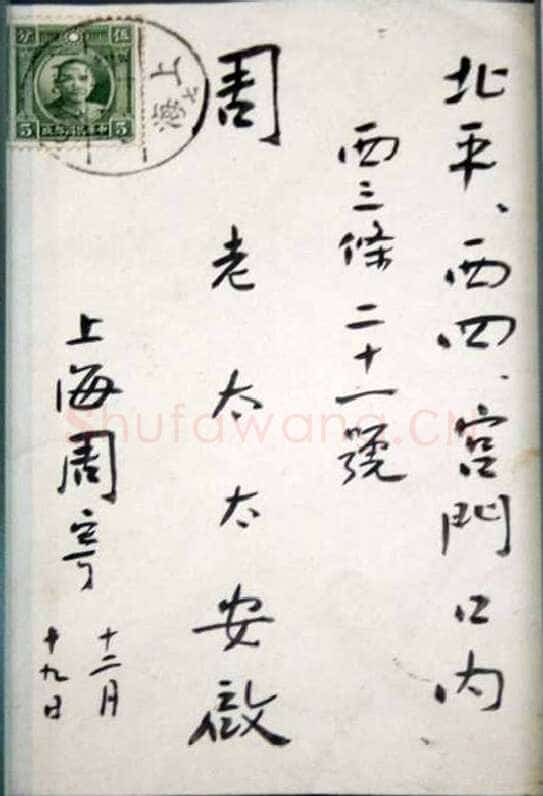 北平、西四、宫門口内
西三條二十一號
周老太太安啟
上海周寄
十二月
十九日
伍分
5 5
上海
Shufawang.CN